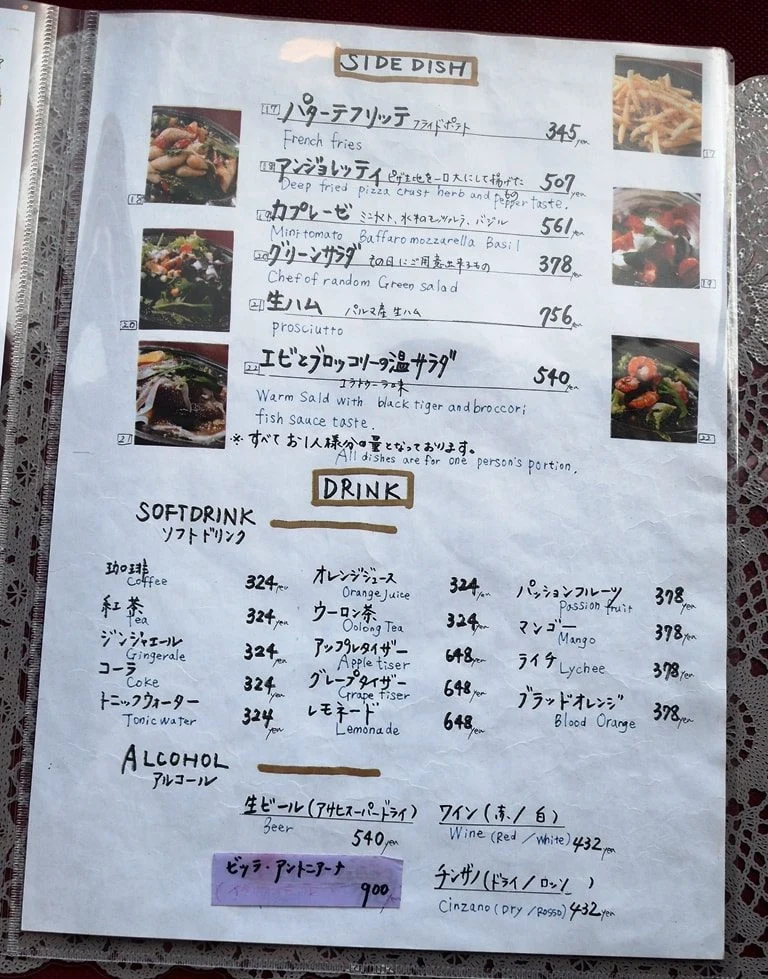 SIDE DISH
17 パターテフリッテ フライドポテト 345yen
French fries
18 アンジョレッティ ピザ生地を一口大にして揚げたもの 507yen
Deep fried pizza crust herb and pepper taste.
19 カプレーゼ ミニトマト、水牛モッツァレラ、バジル 561yen
Minitomato Baffaro mozzarella Basil
20 グリーンサラダ その日にご用意出来るもの 378yen
Chef of random Green salad
21 生ハム パルマ産 生ハム 756yen
prosciutto
22 エビとブロッコリーの温サラダ 540yen
Warm Sald with black tiger and broccori
fish sauce taste.
※すべてお1人様分の量となっております。
All dishes are for one person's portion.
17
18
19
20
21
22
DRINK
SOFTDRINK
ソフトドリンク
珈琲 324yen
Coffee
紅茶 324yen
Tea
ジンジャエール 324yen
Gingerale
コーラ 324yen
Coke
トニックウォーター 324yen
Tonic water
オレンジジュース 324yen
Orange Juice
ウーロン茶 324yen
Oolong Tea
アップルタイザー 648yen
Apple tiser
グレープタイザー 648yen
Grape tiser
レモネード 648yen
Lemonade
パッションフルーツ 378yen
Passion fruit
マンゴー 378yen
Mango
ライチ Lychee 378yen
ブラッドオレンジ 378yen
Blood Orange
ALCOHOL
アルコール
生ビール(アサヒスーパードライ)
Beer
540yen
ビッラ・アントニアーナ
900
ワイン(赤/白)
Wine (Red/White) 432yen
チンザノ(ドライ/ロッソ)
Cinzano (Dry/Rosso) 432yen